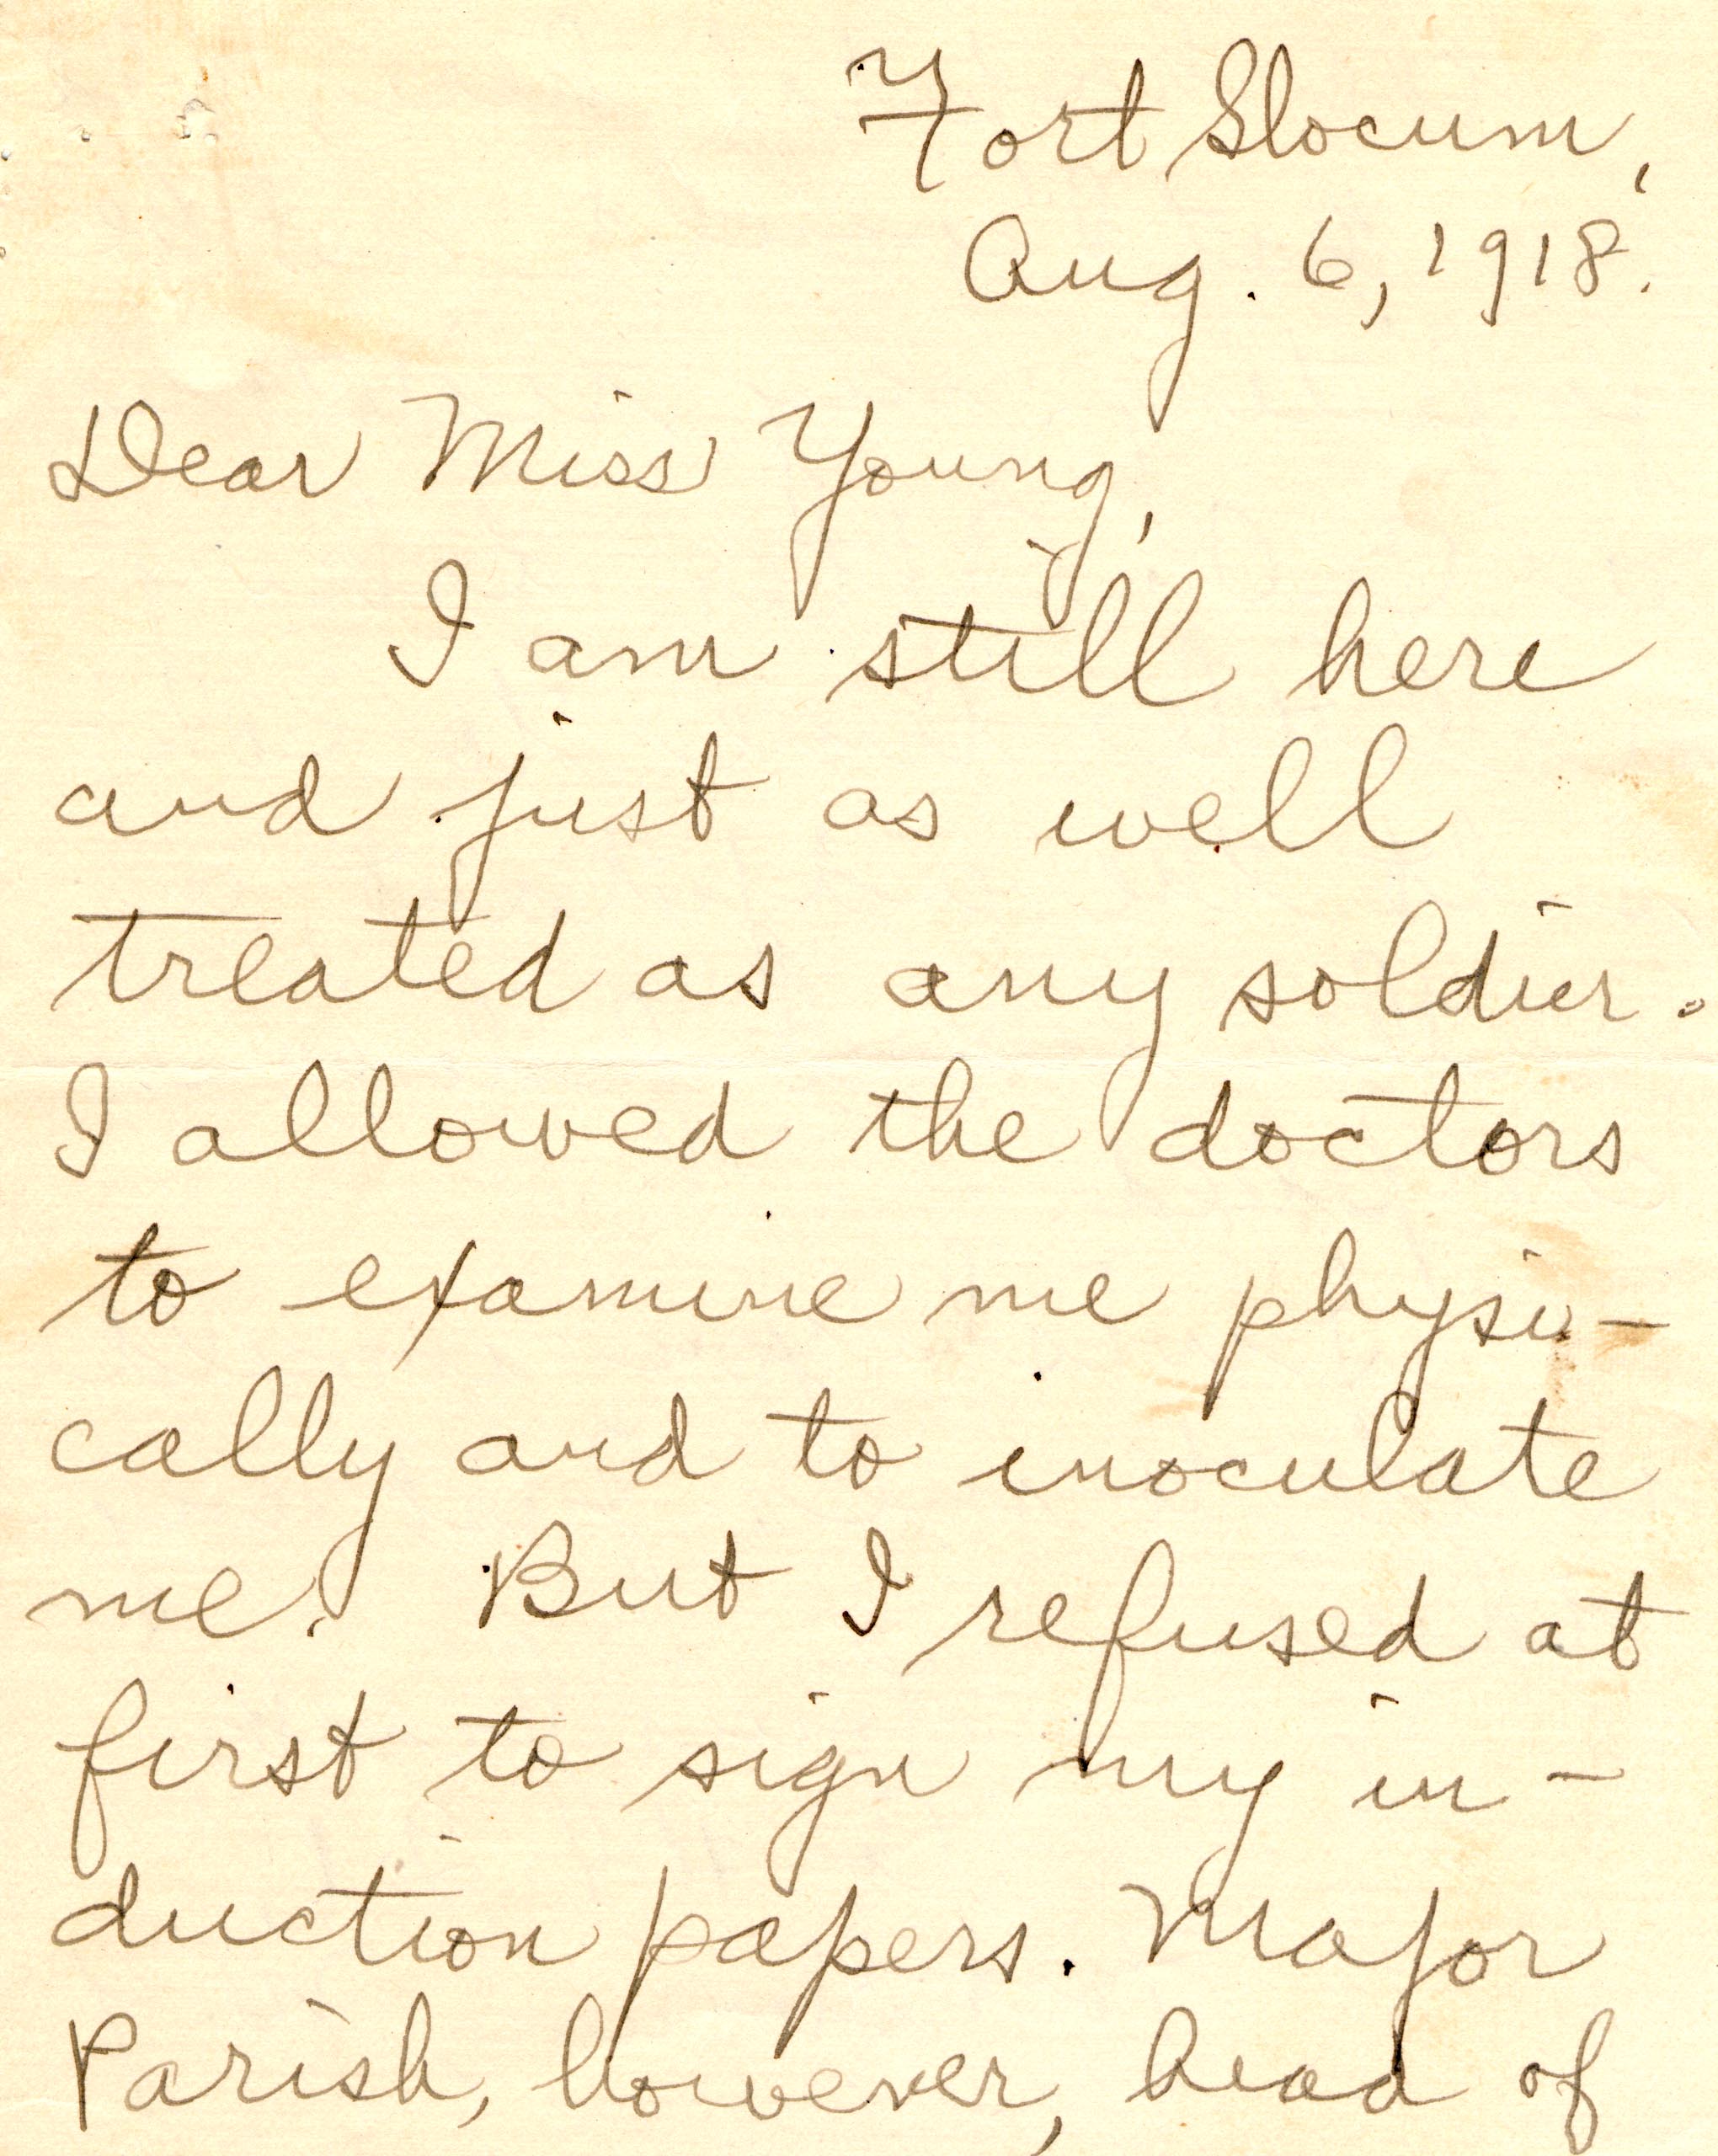 Fort Slocum,
Aug. 6, 1918.
Dear Miss Young,
I am still here
and just as well
treated as any soldier.
I allowed the doctors
to examine me physi-
cally and to inoculate
me. But I refused at
first to sign my in-
duction papers. Major
Parish, however, head of